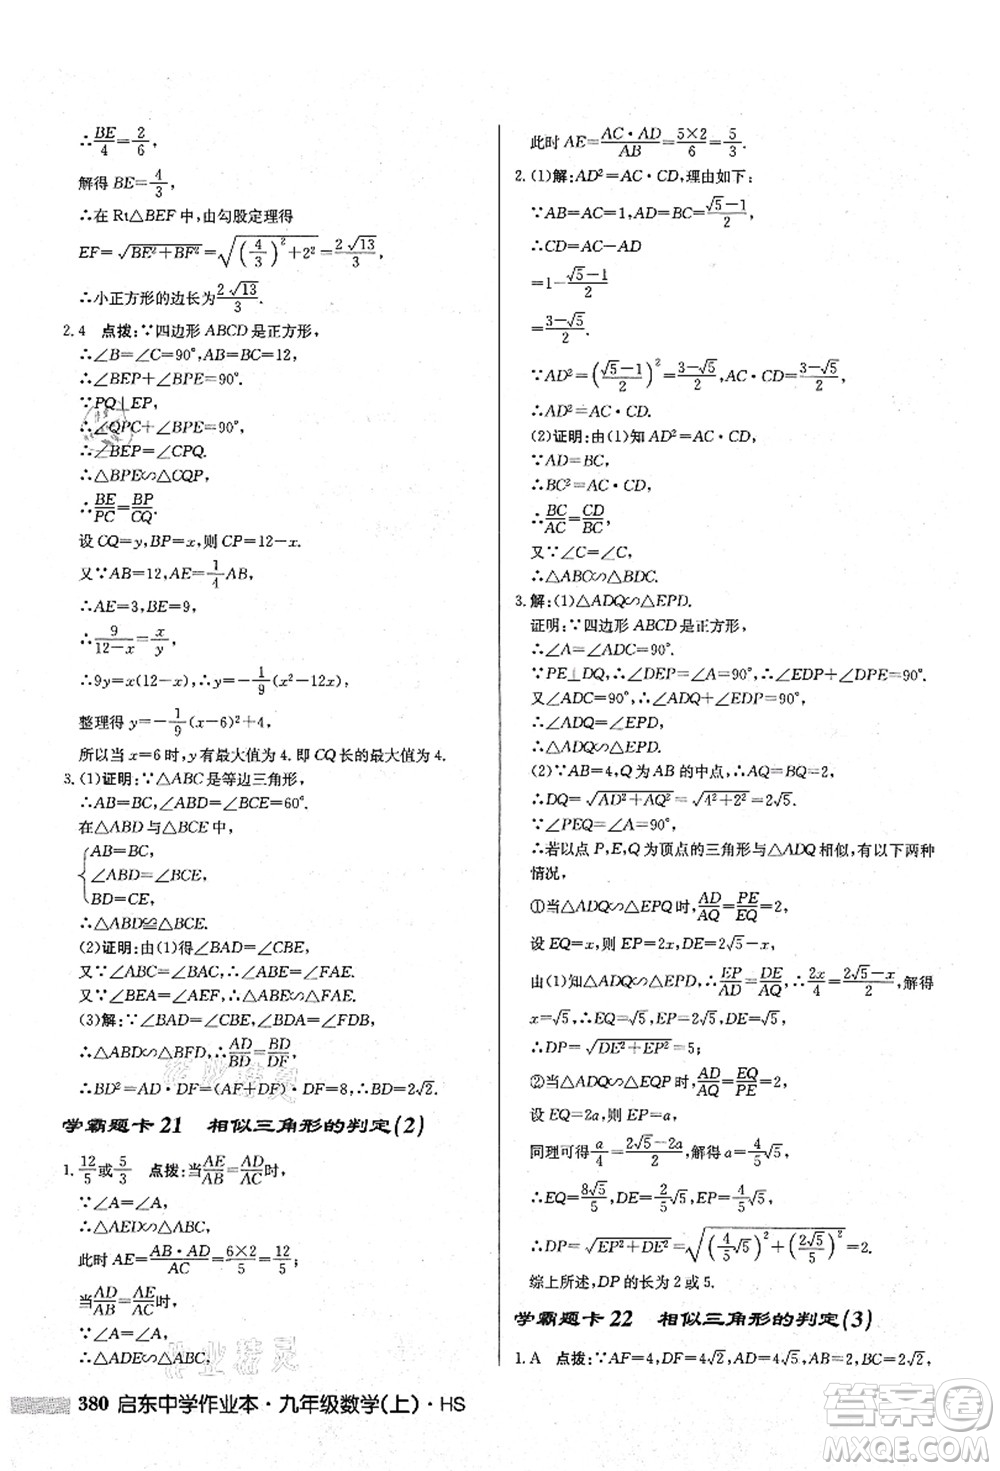 ∴BE/4=2/6,
解得 BE=4/3,
∴在 Rt△BEF 中,由勾股定理得
EF=√(BE²+BF²)=√((4/3)²+2²)=2√13/3,
∴小正方形的边长为2√13/3.
2. 4 点拨:∵四边形 ABCD 是正方形,
∴∠B=∠C=90°,AB=BC=12,
∴∠BEP+∠BPE=90°.
∵PQ⊥EP,
∴∠QPC+∠BPE=90°,
∴∠BEP=∠CPQ.
∴△BPE∽△CQP,
∴BE/PC=BP/CQ.
设 CQ=y,BP=x,则 CP=12-x.
又∵AB=12,AE=1/4AB,
∴AE=3,BE=9,
∴9/(12-x)=x/y,
∴9y=x(12-x),∴y=-1/9(x²-12x),
整理得 y=-1/9(x-6)²+4,
所以当 x=6 时,y 有最大值为 4. 即 CQ 长的最大值为 4.
3. (1)证明:∵△ABC 是等边三角形,
∴AB=BC,∠ABD=∠BCE=60°.
在△ABD 与△BCE 中,
AB=BC,
∠ABD=∠BCE,
BD=CE,
∴△ABD≌△BCE.
(2)证明:由(1)得∠BAD=∠CBE,
又∵∠ABC=∠BAC,∴∠ABE=∠FAE.
又∵∠BEA=∠AEF,∴△ABE∽△FAE.
(3)解:∵∠BAD=∠CBE,∠BDA=∠FDB,
∴△ABD∽△BFD,∴AD/BD=BD/DF,
∴BD²=AD·DF=(AF+DF)·DF=8,∴BD=2√2.
学霸题卡 21 相似三角形的判定(2)
1. 12/5或5/3 点拨:当AE/AB=AD/AC时,
∵∠A=∠A,
∴△AED∽△ABC,
此时 AE=AB·AD/AC=6×2/5=12/5;
当AD/AB=AE/AC时,
∵∠A=∠A,
∴△ADE∽△ABC,
此时 AE=AC·AD/AB=5×2/6=5/3.
2. (1)解:AD²=AC·CD,理由如下:
∵AB=AC=1,AD=BC=(√5-1)/2,
∴CD=AC-AD
=1-(√5-1)/2
=(3-√5)/2.
∵AD²=((√5-1)/2)²=(3-√5)/2,AC·CD=(3-√5)/2,
∴AD²=AC·CD.
(2)证明:由(1)知 AD²=AC·CD,
∵AD=BC,
∴BC²=AC·CD,
∴BC/AC=CD/BC,
又∵∠C=∠C,
∴△ABC∽△BDC.
3. 解:(1)△ADQ∽△EPD.
证明:∵四边形 ABCD 是正方形,
∴∠A=∠ADC=90°.
∵PE⊥DQ,∴∠PED=∠A=90°,∴∠EDP+∠DPE=90°.
又∠ADC=90°,∴∠ADQ+∠EDP=90°,
∴∠ADQ=∠EPD,
∴△ADQ∽△EPD.
(2)∵AB=4,Q 为 AB 的中点,∴AQ=BQ=2,
∴DQ=√(AD²+AQ²)=√(4²+2²)=2√5.
∵∠PEQ=∠A=90°,
∴若以点 P,E,Q 为顶点的三角形与△ADQ 相似,有以下两种
情况,
①当△ADQ∽△EPQ 时,AD/AQ=PE/EQ=2,
设 EQ=x,则 PE=2x,DE=2√5-x,
由(1)知△ADQ∽△EPD,∴EP/AD=DE/AQ,∴2x/4=(2√5-x)/2,解得
x=√5,∴EQ=√5,EP=2√5,
∴DP=√(DE²+EP²)=5;
②当△ADQ∽△EQP 时,AD/AQ=EQ/EP=2,
设 EQ=2a,则 EP=a,
同理可得a/4=(2√5-2a)/2,解得 a=4√5/5,
∴EQ=8√5/5,DE=2√5/5,EP=4√5/5,
∴DP=√(EP²+DE²)=√((4/5√5)²+(2√5/5)²)=2.
综上所述,DP 的长为 2 或 5.
学霸题卡 22 相似三角形的判定(3)
1. A 点拨:∵AF=4,DF=4√2,AB=2,BC=2√2,
380 启东中学作业本·九年级数学(上)·HS
作业精灵
MXQE.COM